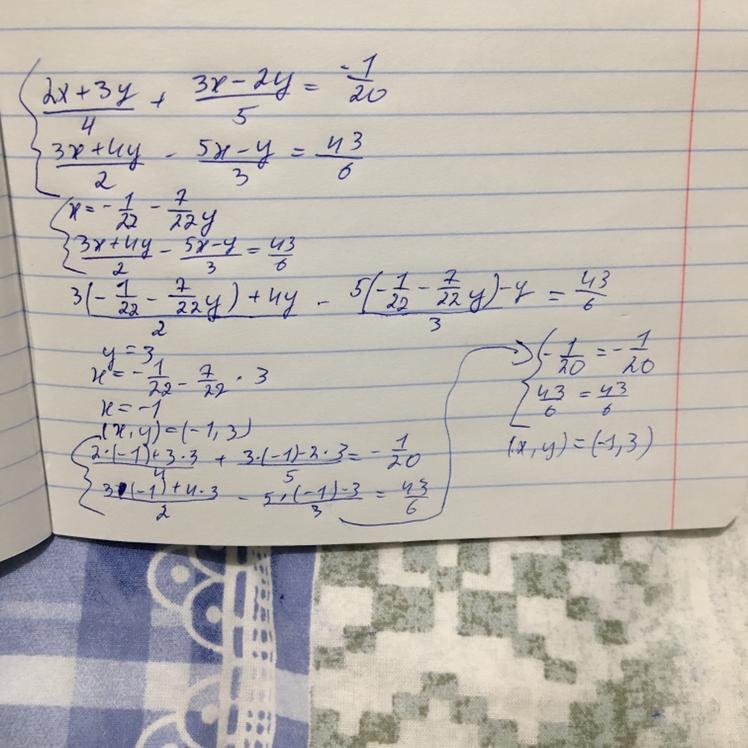 (2x+3y)/4 + (3x-2y)/5 = -1/20
(3x+4y)/2 - (5x-y)/3 = 43/6
x = -1/22 - 7/22y
(3x+4y)/2 - (5x-y)/3 = 43/6
(3(-1/22 - 7/22y)+4y)/2 - (5(-1/22 - 7/22y)-y)/3 = 43/6
y = 3
x = -1/22 - 7/22 · 3
x = -1
(x, y) = (-1, 3)
(2·(-1)+3·3)/4 + (3·(-1)-2·3)/5 = -1/20
(3·(-1)+4·3)/2 - (5·(-1)-3)/3 = 43/6
-1/20 = -1/20
43/6 = 43/6
(x, y) = (-1, 3)